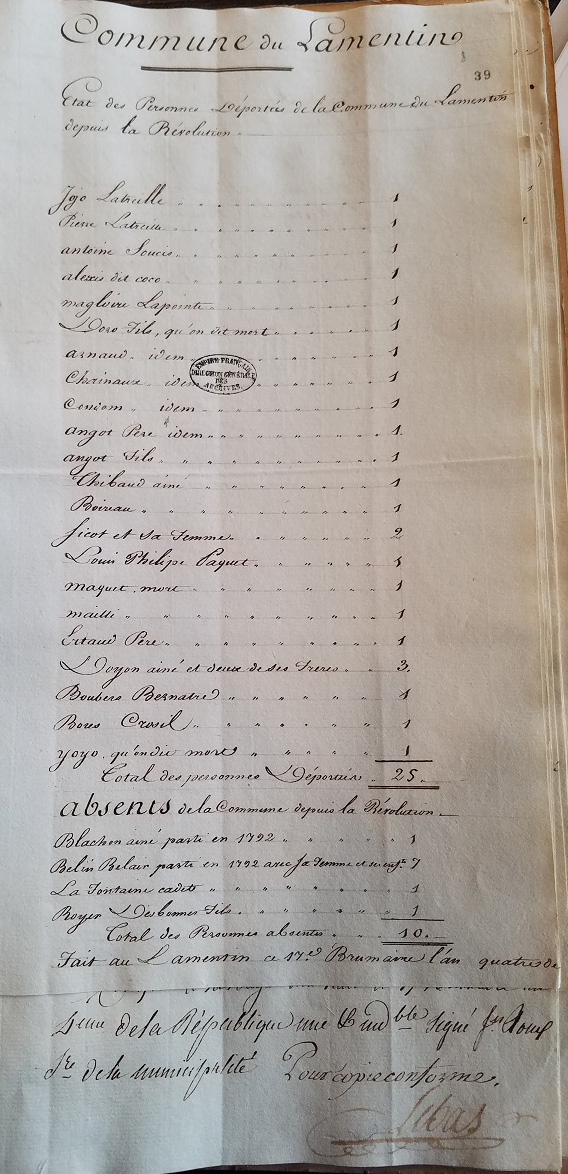 Commune du Lamentin
39
Etat des Personnes Déportées de la Commune du Lamentin
depuis la Révolution
Jojo Latreille 1
Pierre Latreille 1
antoine Soucis 1
alexis dit coco 1
magloire Lapointe 1
Doro Fils, qu'on dit mort 1
arnaud idem 1
Chainaux idem 1
EMPIRE FRANÇAIS
DIRECTION GÉNÉRALE
DES
ARCHIVES
Condom idem 1
angot Pere idem 1
angot Fils 1
Thibaud ainé 1
Boireau 1
ficot et sa femme 2
Louis Philipe Paquet 1
maquet, mort 1
mailli 1
Ertaud Pere 1
Doyon ainé et deux de ses Freres 3
Boubers Bernatre 1
Bores Crosil 1
yoyo, qu'on dit mort 1
Total des personnes Déportées 25
absents de la Commune depuis la Révolution
Blachon ainé parti en 1792 1
Belin Belair parti en 1792 avec sa femme et 7
La Fontaine cadet 1
Royer Desbonnes Fils 1
Total des Personnes absentes 10
Fait au Lamentin ce 17.e Brumaire l'an quatre de
de la République une & ind.ble signé
S.re de la municipalité Pour copie conforme.
Lebas